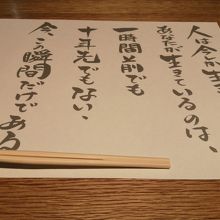 人は今が
あなたが生きているのは、
一時間前でも
十年先でもない、
今、この瞬間だけである